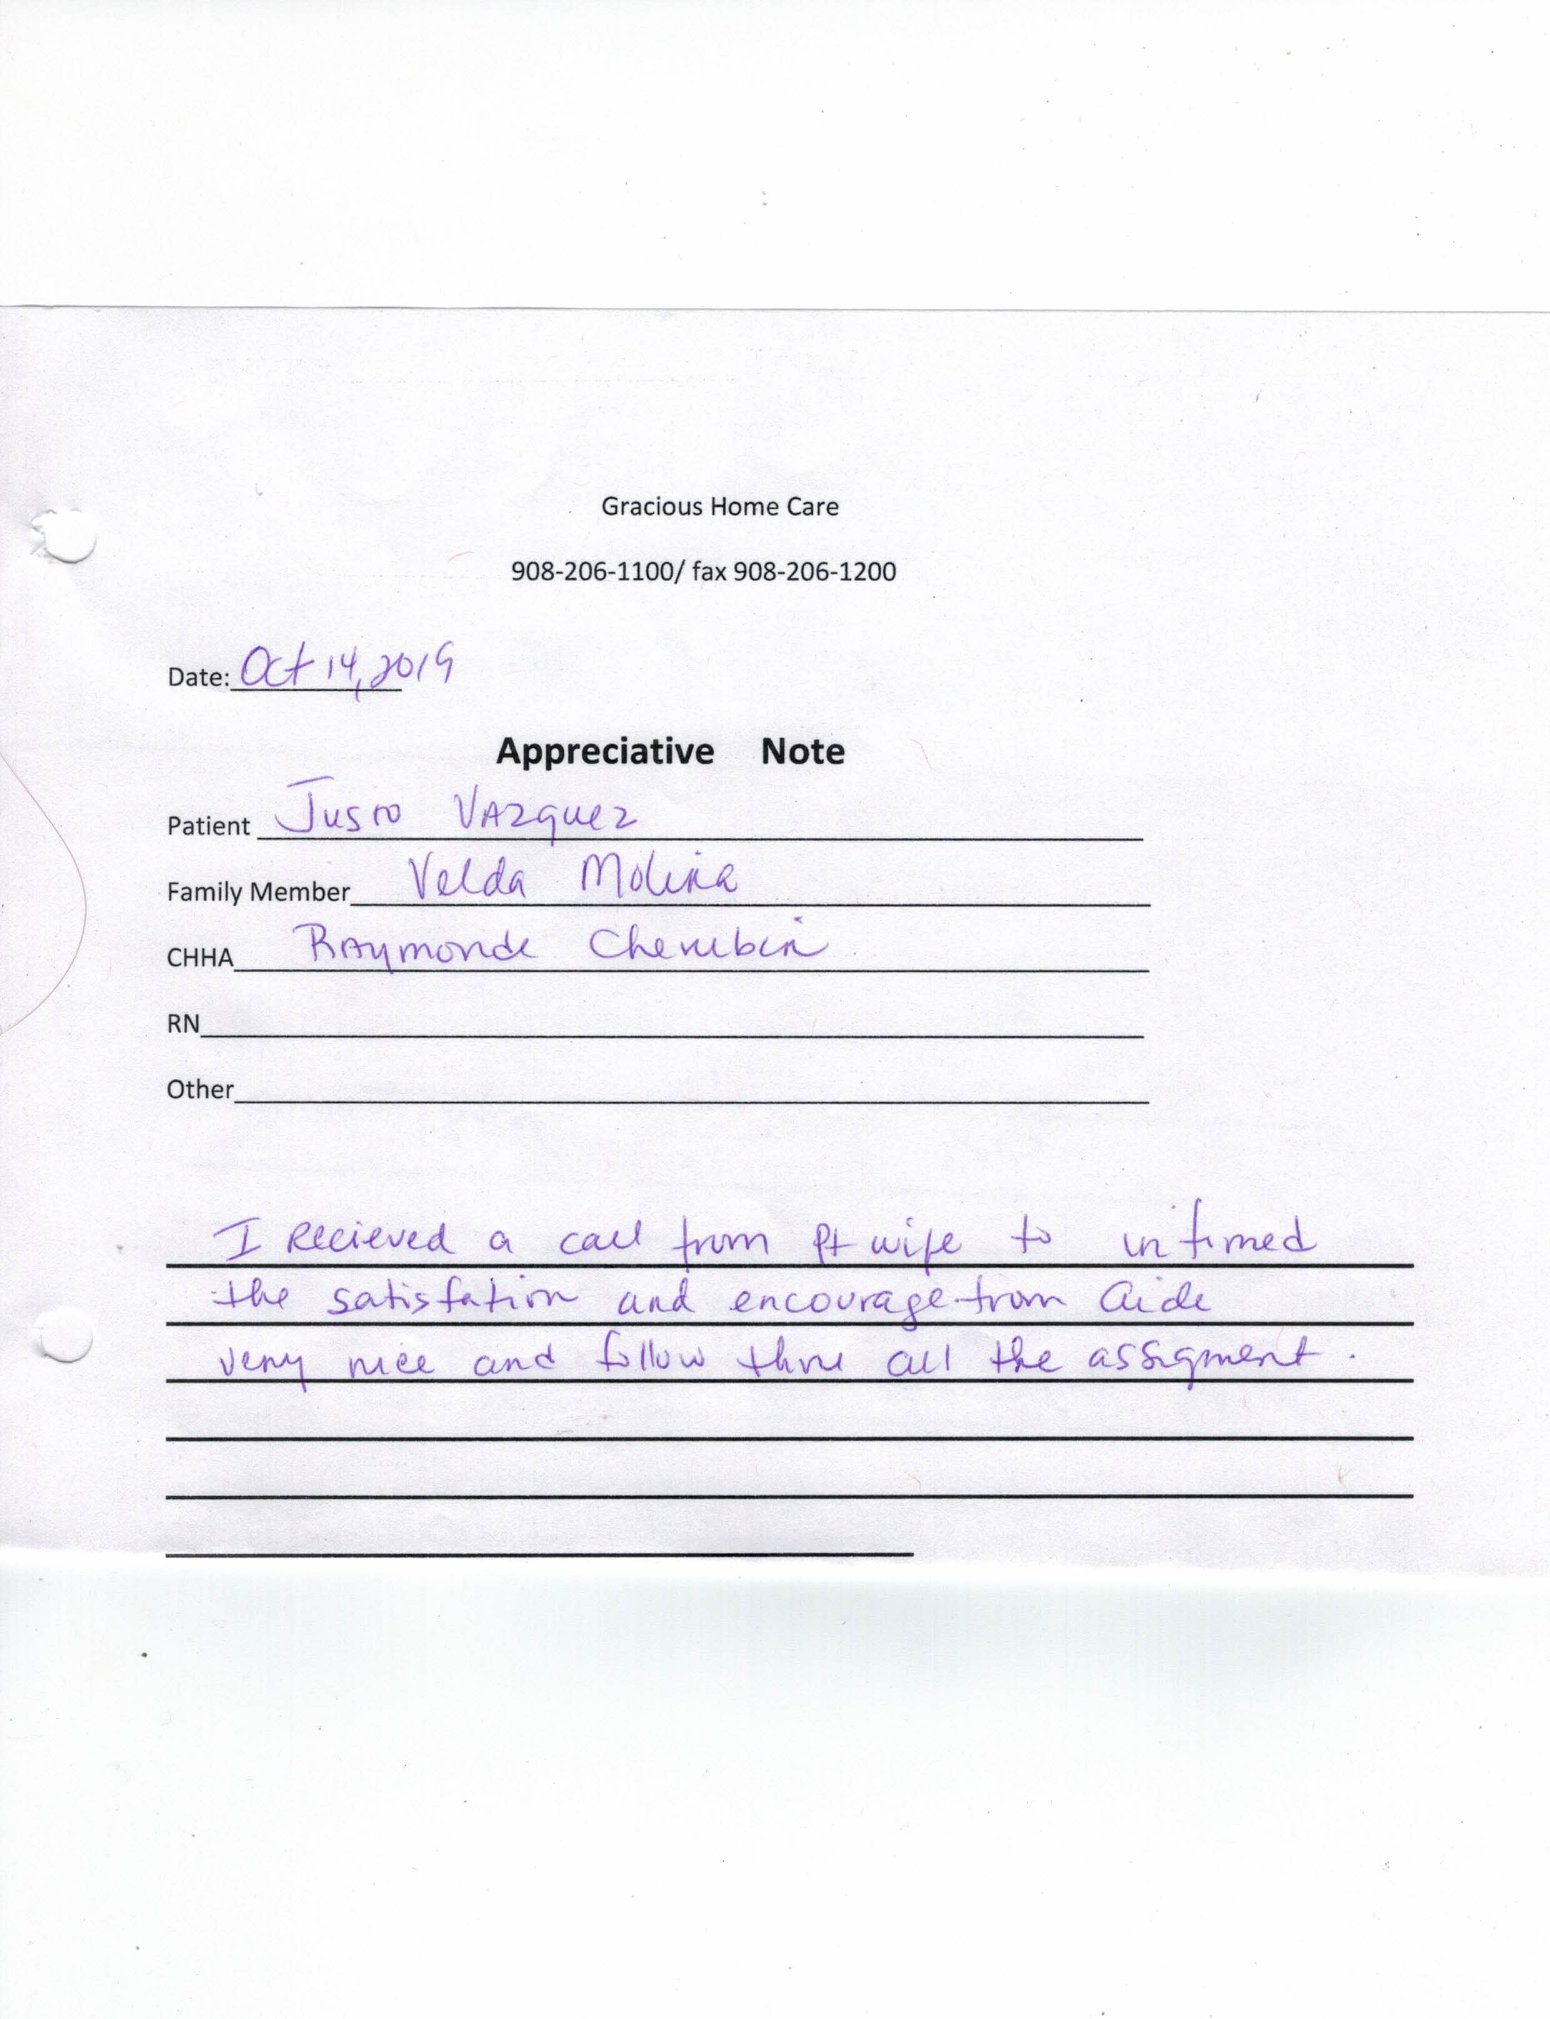 Gracious Home Care
908-206-1100/ fax 908-206-1200
Date: Oct 14, 2019
Appreciative Note
Patient Justo Vazquez
Family Member Velda Molina
CHHA Raymonde Cherubin
RN
Other
I recieved a call from Pt wife to infirmed
the satisfation and encourage from Aide
very nice and follow thru all the assigment.